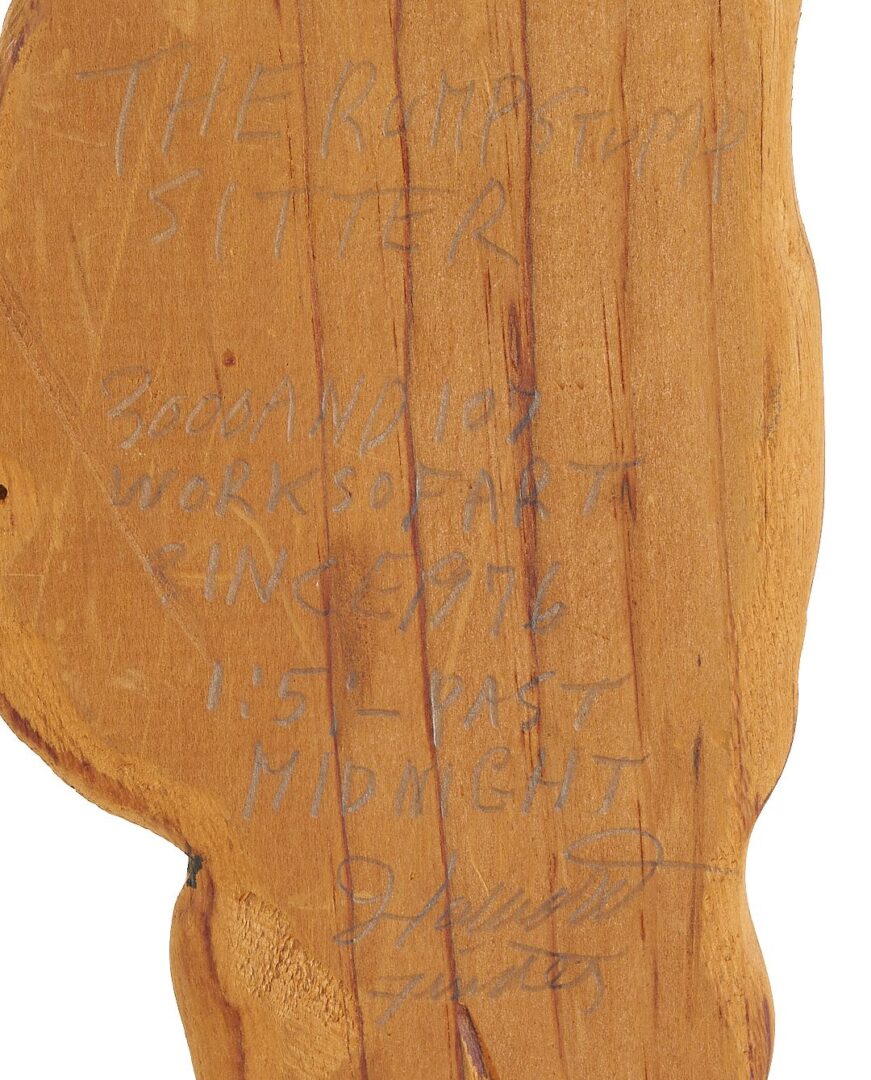 THE RUMPSTUMP
SITTER
3000 AND 107
WORKS OF ART
SINCE 1976
1:5:- PAST
MIDNIGHT
Howard
Finster